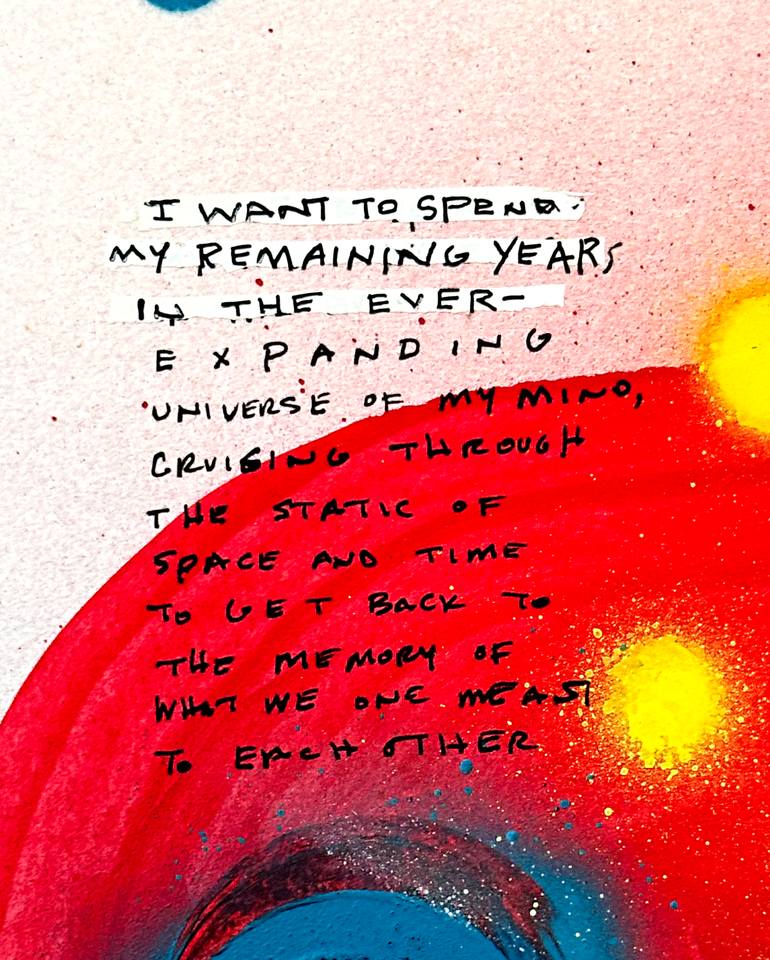 I WANT TO SPEND
MY REMAINING YEARS
IN THE EVER-
EXPANDING
UNIVERSE OF MY MIND,
CRUISING THROUGH
THE STATIC OF
SPACE AND TIME
TO GET BACK TO
THE MEMORY OF
WHAT WE ONE MEAST
TO EACH OTHER